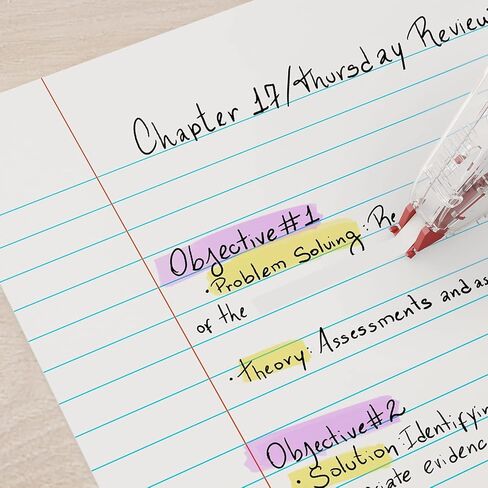 Chapter 17/Thursday Review
Objective #1
• Problem Solving: Re
of the
• Theory: Assessments and as
Objective #2
• Solution: Identifying
evidenc